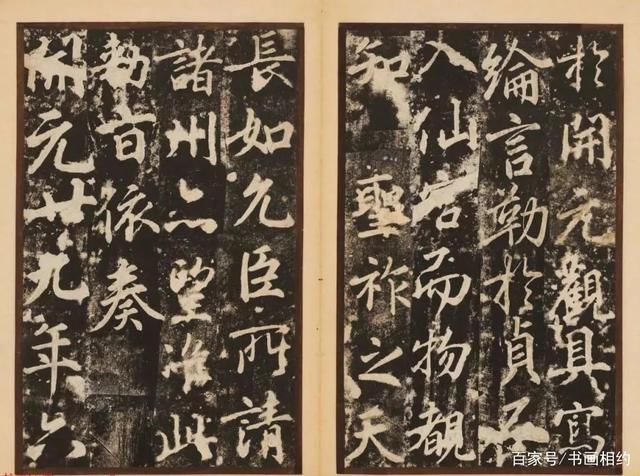 於開元觀具寫
綸言勒於貞石
入仙宮而物覩
知聖祚之天
長如允臣所請
諸州亦望准此
勑旨依奏
開元廿九年六
百家号/书画相约